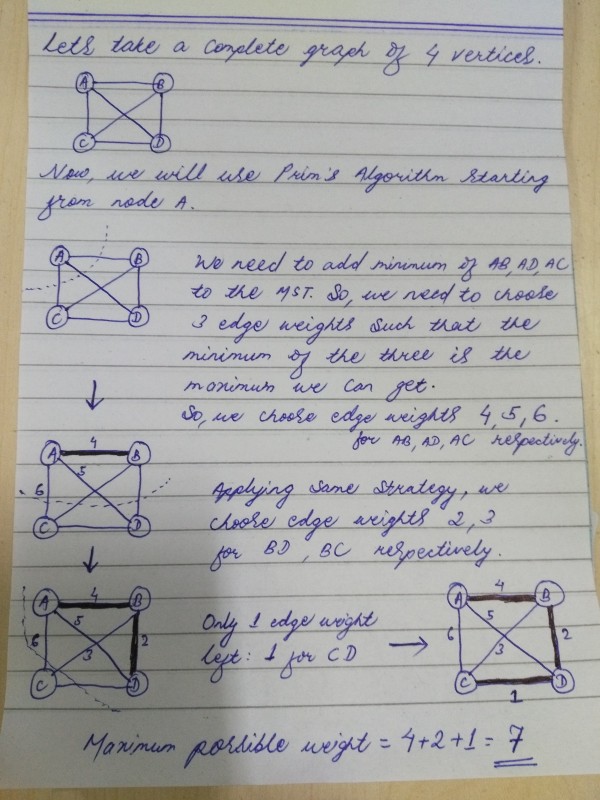 Lets take a complete graph of 4 vertices.
A B
C D
Now, we will use Prim's Algorithm starting
from node A.
A B
C D
We need to add minimum of AB, AD, AC
to the MST. So, we need to choose
3 edge weights such that the
minimum of the three is the
maximum we can get.
So, we choose edge weights 4, 5, 6.
for AB, AD, AC respectively.
4
A B
5
6
C D
Applying same strategy, we
choose edge weights 2, 3
for BD, BC respectively.
4
A B
5
6 2
3
C D
Only 1 edge weight
left: 1 for CD
4
A B
5
6 2
3
C D
1
Maximum possible weight = 4+2+1 = 7